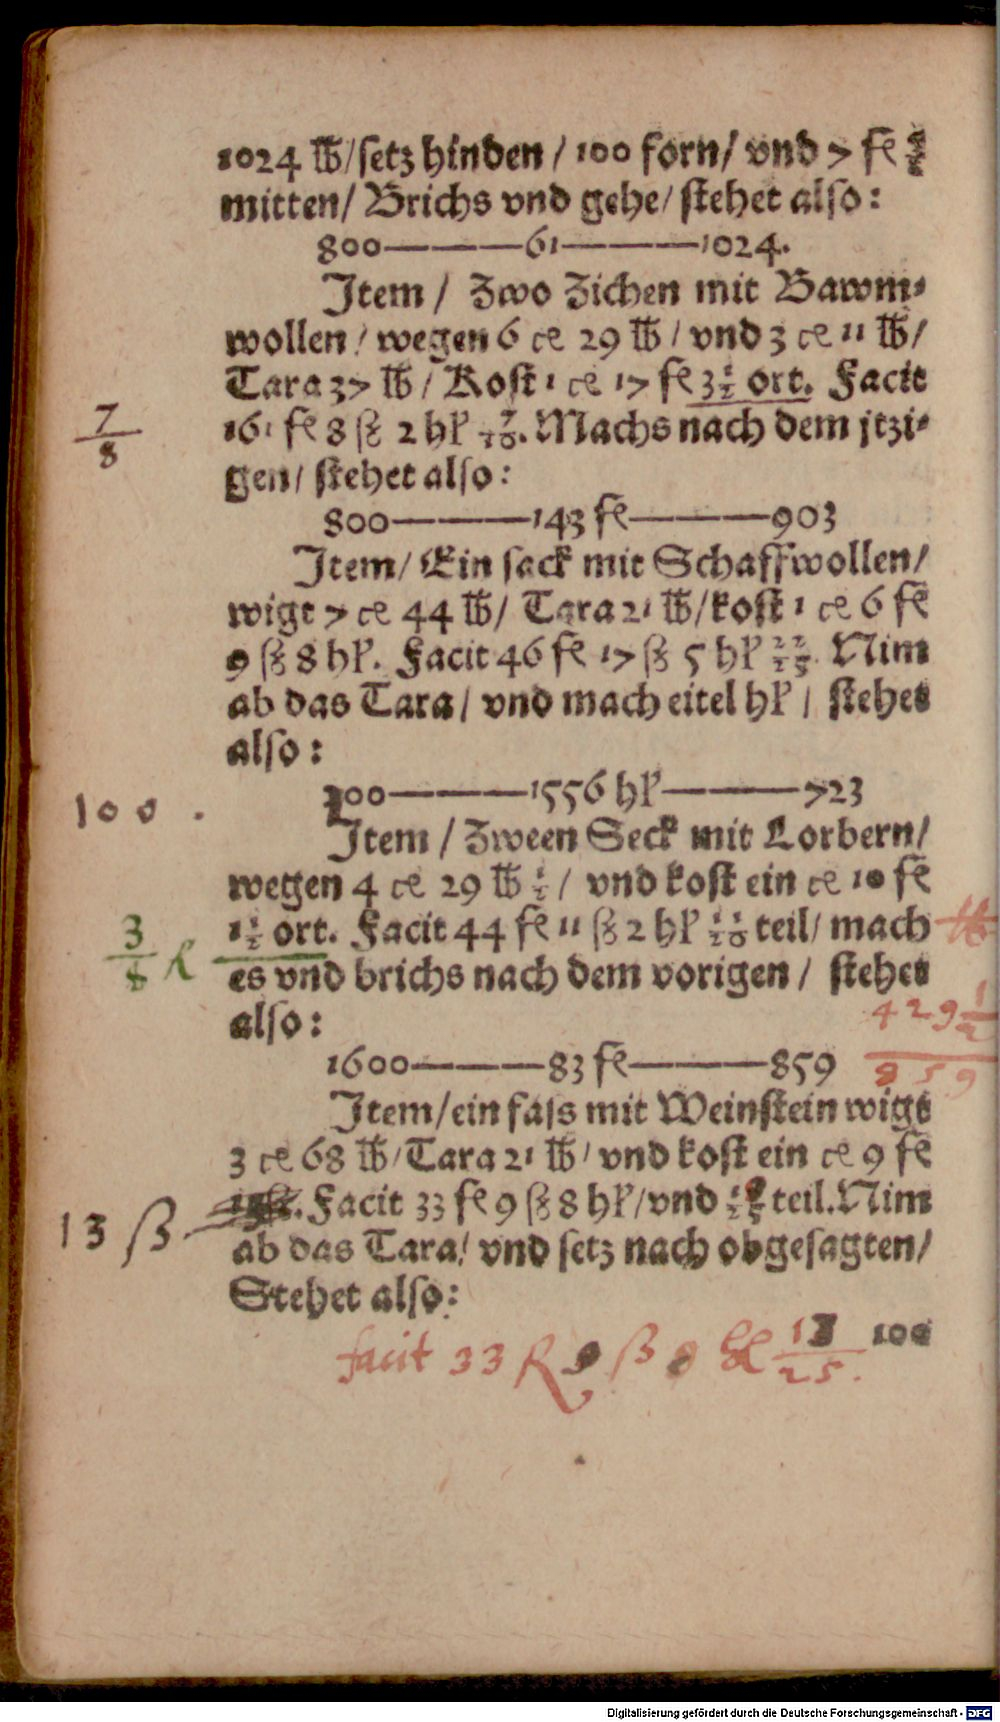 1024 ℔/setz hinden / 100 forn/ vnd 7 fl
mitten/ Brichs vnd gehe/ stehet also:
800———61———1024.
Item / Zwo Zichen mit Bawm⸗
wollen/ wegen 6 ce 29 ℔ / vnd 3 ce 11 ℔/
Tara 37 ℔ / Kost 1 ce 17 fl 3 1/2 ort. Facit
7/8
161 fl 8 ß 2 hl 7/10. Machs nach dem jtzi⸗
gen/ stehet also:
800———143 fl———903
Item/ Ein sack mit Schaffwollen/
wigt 7 ce 44 ℔/ Tara 21 ℔/kost 1 ce 6 fl
9 ß 8 hl. Facit 46 fl 17 ß 5 hl 22/25. Nim
ab das Tara/ vnd mach eitel hl / stehet
also:
100 .
300———1556 hl———723
Item / Zween Seck mit Lorbern/
wegen 4 ce 29 ℔ 1/2/ vnd kost ein ce 10 fl
1 1/2 ort. Facit 44 fl 11 ß 2 hl 11/20 teil/ mach
℔
3/8 fl
es vnd brichs nach dem vorigen / stehet
also:
429 1/2
859
1600———83 fl———859
Item/ein fass mit Weinstein wigt
3 ce 68 ℔/Tara 21 ℔/ vnd kost ein ce 9 fl
13 ß
Facit 33 fl 9 ß 8 hl/vnd teil. Nim
ab das Tara/ vnd setz nach obgesagten/
Stehet also:
100
facit 33 fl 9 ß 8 hl 13/25.
Digitalisierung gefördert durch die Deutsche Forschungsgemeinschaft - DFG